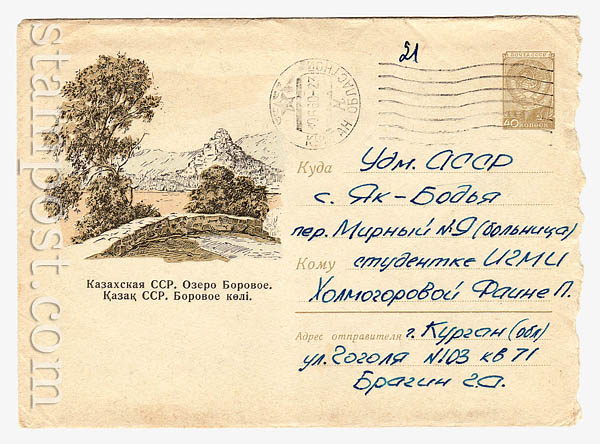 21
ПОЧТА СССР
40 КОПЕЕК
Куда Удм. АССР
с. Як-Бодья
пер. Мирный №9 (больница)
Кому студентке ИГМИ
Холмогоровой Фаине П.
Адрес отправителя г. Курган (обл)
ул. Гоголя №103 кв 71
Брагин Г.А.
Казахская ССР. Озеро Боровое.
Қазақ ССР. Боровое көлі.
stampost.com
stampost.com